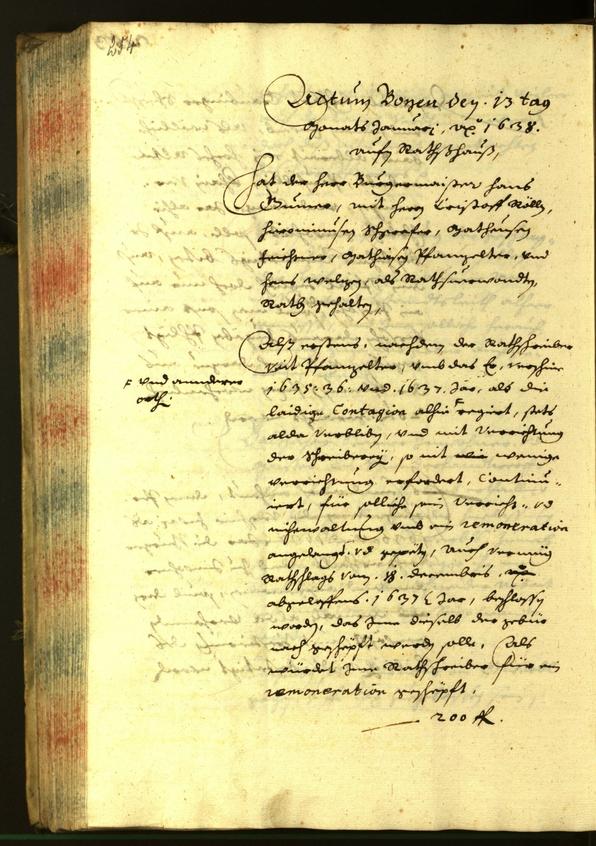 254
Actum Bozen den 13 tag
Monats Januarj, A.o 1638.
aufm Rathshauß,
Hat der Herr Burgermaister Hans
Gumer, mit Herrn Cristoff Röll,
Hieronimusen Schgrafer, Matheusen
Mathiasen Pfanzelter, und
Hans als Rathsverwandten,
Rath gehalten,
Alß erstens, nachdem der Rathschreiber
Veit Pfanzelter, umb das Er, verschine
1635. 36. und. 1637. Jar, als die
laidige Contagion alhie regirt, stets
alda verbliben, und mit verrichtung
der Schreiberey, so nit wenige
verrichtung erfordert, Continu-
iert, für solliche sein Verricht- vnd
müehewaltung umb ein remoneration
angelangt. vnd gepeten, auch vermüg
Rathschlags vom. 18. decembris,
abgeloffens. 1637.t Jar, beschlossen
worden, das Ime dieselb der gebür
nach geschöpft werden solle, Als
würdet Ime Rathschreiber für ein
remoneration geschöpft.
200 fl.
und annderer
orth.